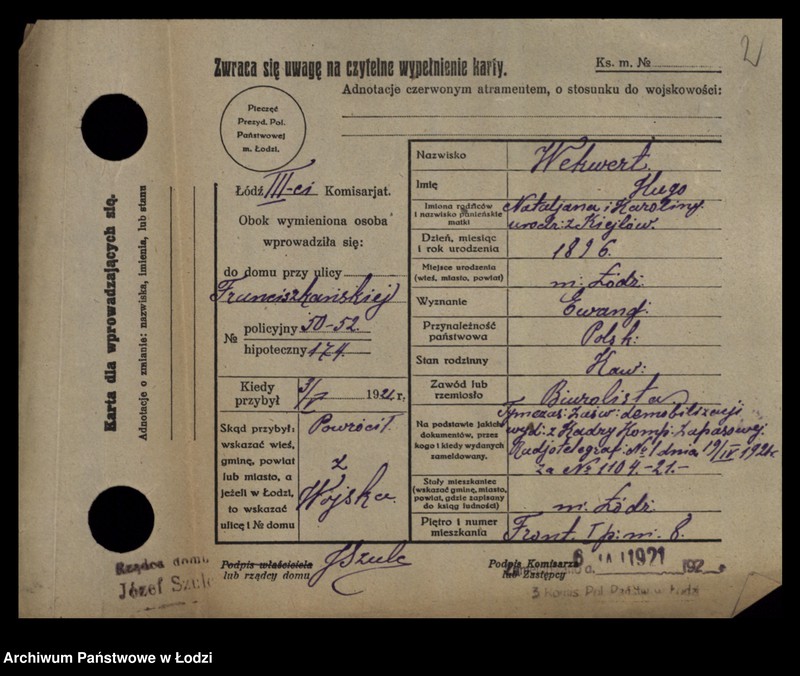 2
Zwraca się uwagę na czytelne wypełnienie karty.
Ks. m. №
Adnotacje czerwonym atramentem, o stosunku do wojskowości:
Pieczęć
Prezyd. Pol.
Państwowej
m. Łodzi.
Karta dla wprowadzających się.
Adnotacje o zmianie: nazwiska, imienia, lub stanu
Łódź III-ci Komisarjat.
Obok wymieniona osoba
wprowadziła się:
do domu przy ulicy
Franciszkańskiej
№ policyjny 50-52.
hipoteczny 174.
Kiedy przybył 3/V 1921 r.
Skąd przybył:
wskazać wieś,
gminę, powiat
lub miasto, a
jeżeli w Łodzi,
to wskazać
ulicę i № domu
Powrócił
z
Wojska.
Nazwisko Wekwert.
Imię Hugo
Imiona rodziców
i nazwisko panieńskie
matki
Karoliny
Dzień, miesiąc
i rok urodzenia
1896.
Miejsce urodzenia
(wieś, miasto, powiat)
m. Łódź.
Wyznanie Ewang:
Przynależność
państwowa
Polsk:
Stan rodzinny Kaw:
Zawód lub
rzemiosło
Biuralista
Na podstawie jakich
dokumentów, przez
kogo i kiedy wydanych
zameldowany.
Tymczas: Zaśw: demobilizacji
wyd: z Kadry Komp: Zapasowej
Radjotelegraf: № 1 dnia 19/IV 1921r
za № 1104-21.-
Stały mieszkaniec
(wskazać gminę, miasto,
powiat, gdzie zapisany
do ksiąg ludności)
m. Łódź.
Piętro i numer
mieszkania
Front I p. m. 8.
Rządca domu
Józef Szulc
Podpis właściciela
lub rządcy domu
JSzulc
Podpis Komisarza
lub Zastępcy
6 MAJ 1921
192
3 Komis. Pol. Państw. w Łodzi
Archiwum Państwowe w Łodzi